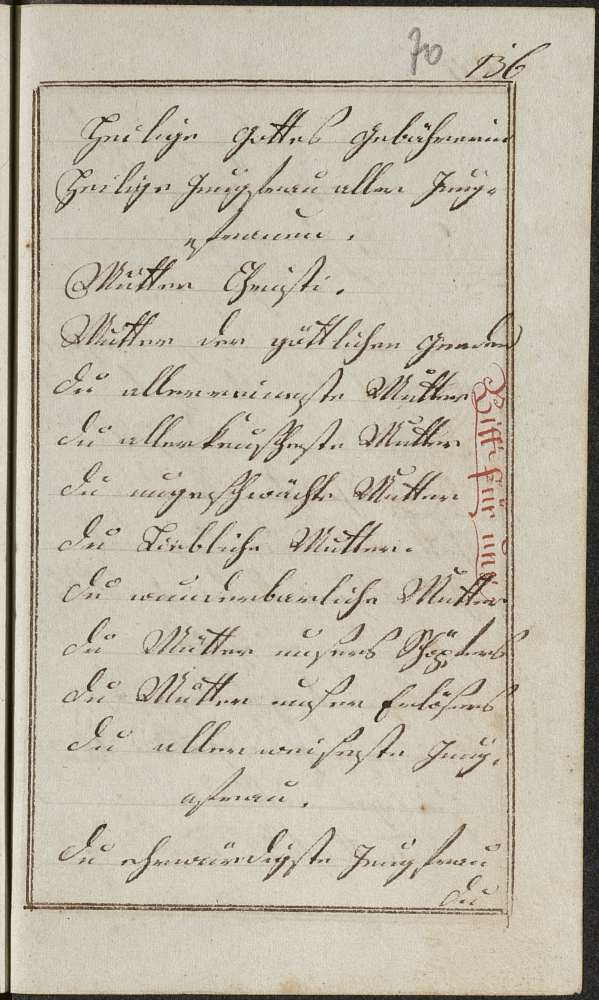 70
136
Heilige Gottes Gebährerin
Heilige Jungfrau aller Jung-
frauen.
Mutter Christi.
Mutter der göttlichen Genaden
du allerreineste Mutter
du allerkeuscheste Mutter
du ungeschwächte Mutter
du Liebliche Mutter.
du wunderbarliche Mutter
du Mutter unsers Schöpfers
du Mutter unser Erlösers
du aller weiseste Jung-
frau.
du ehrwürdigste Jungfrau
du
Bitt für uns